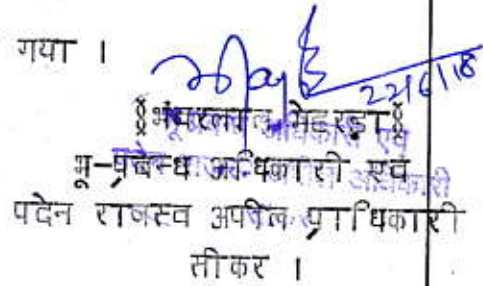 गया ।
22/6/18
भंवरलाल मेहरड़ा
भू-प्रबन्ध अधिकारी एवं
पदेन राजस्व अपील प्राधिकारी
सीकर ।